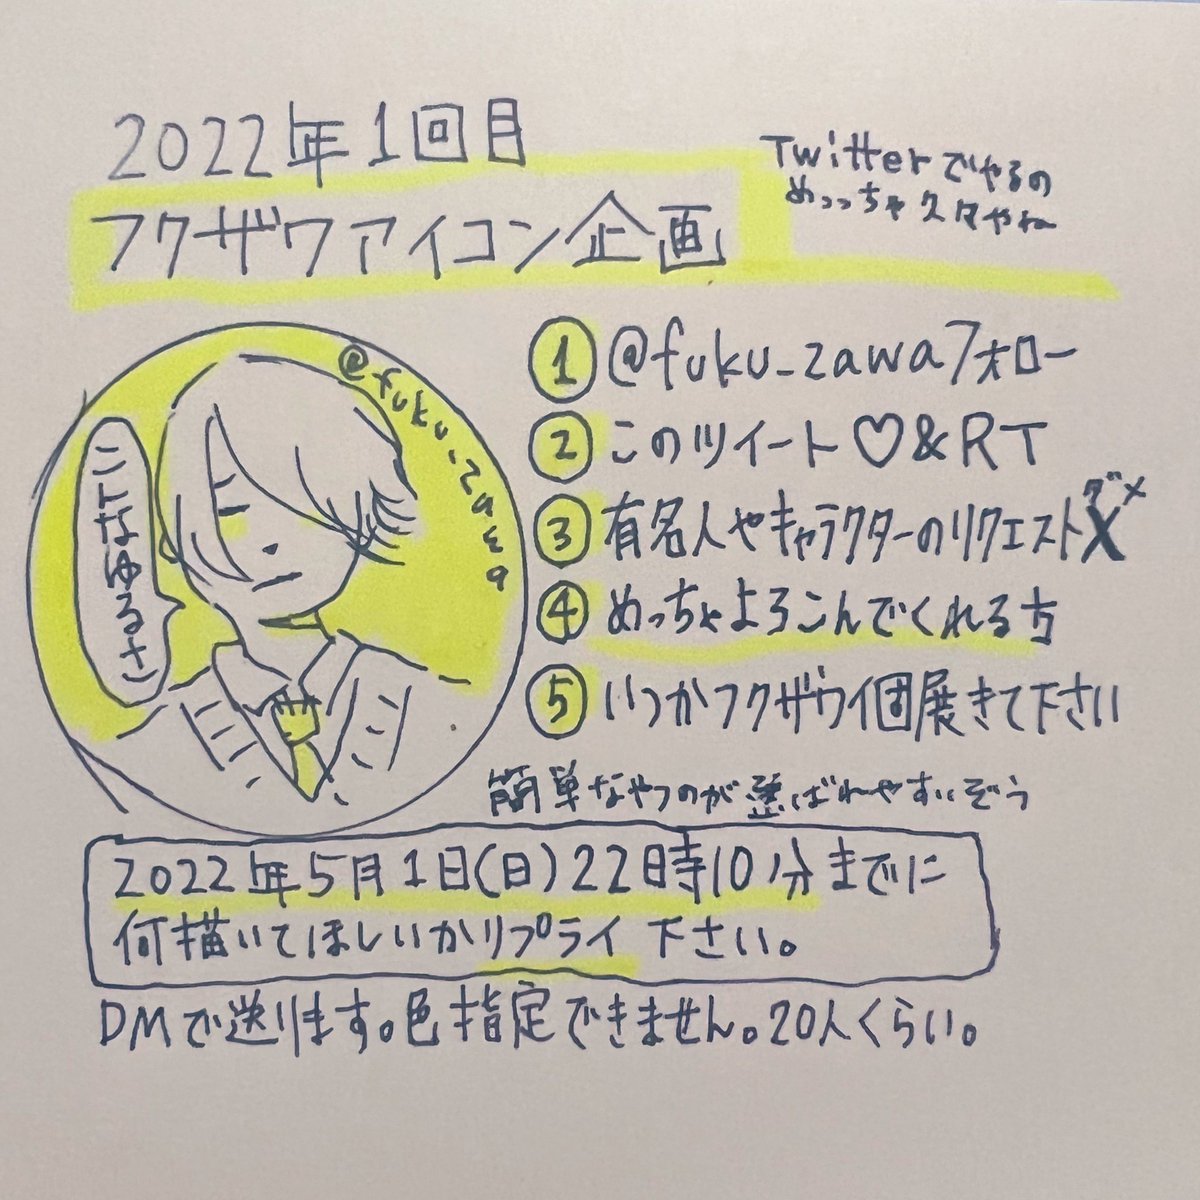 2022年1回目
フクザワアイコン企画
Twitterでやるの
めっっちゃ久々やね
@fuku_zawa
こんなゆるさ
① @fuku_zawaフォロー
② このツイート♡&RT
③ 有名人やキャラクターのリクエストダメX
④ めっちゃよろこんでくれる方
⑤ いつかフクザワイ個展きて下さい
簡単なやつのが選ばれやすいぞう
2022年5月1日(日)22時10分までに
何描いてほしいかリプライ下さい。
DMで送ります。色指定できません。20人くらい。